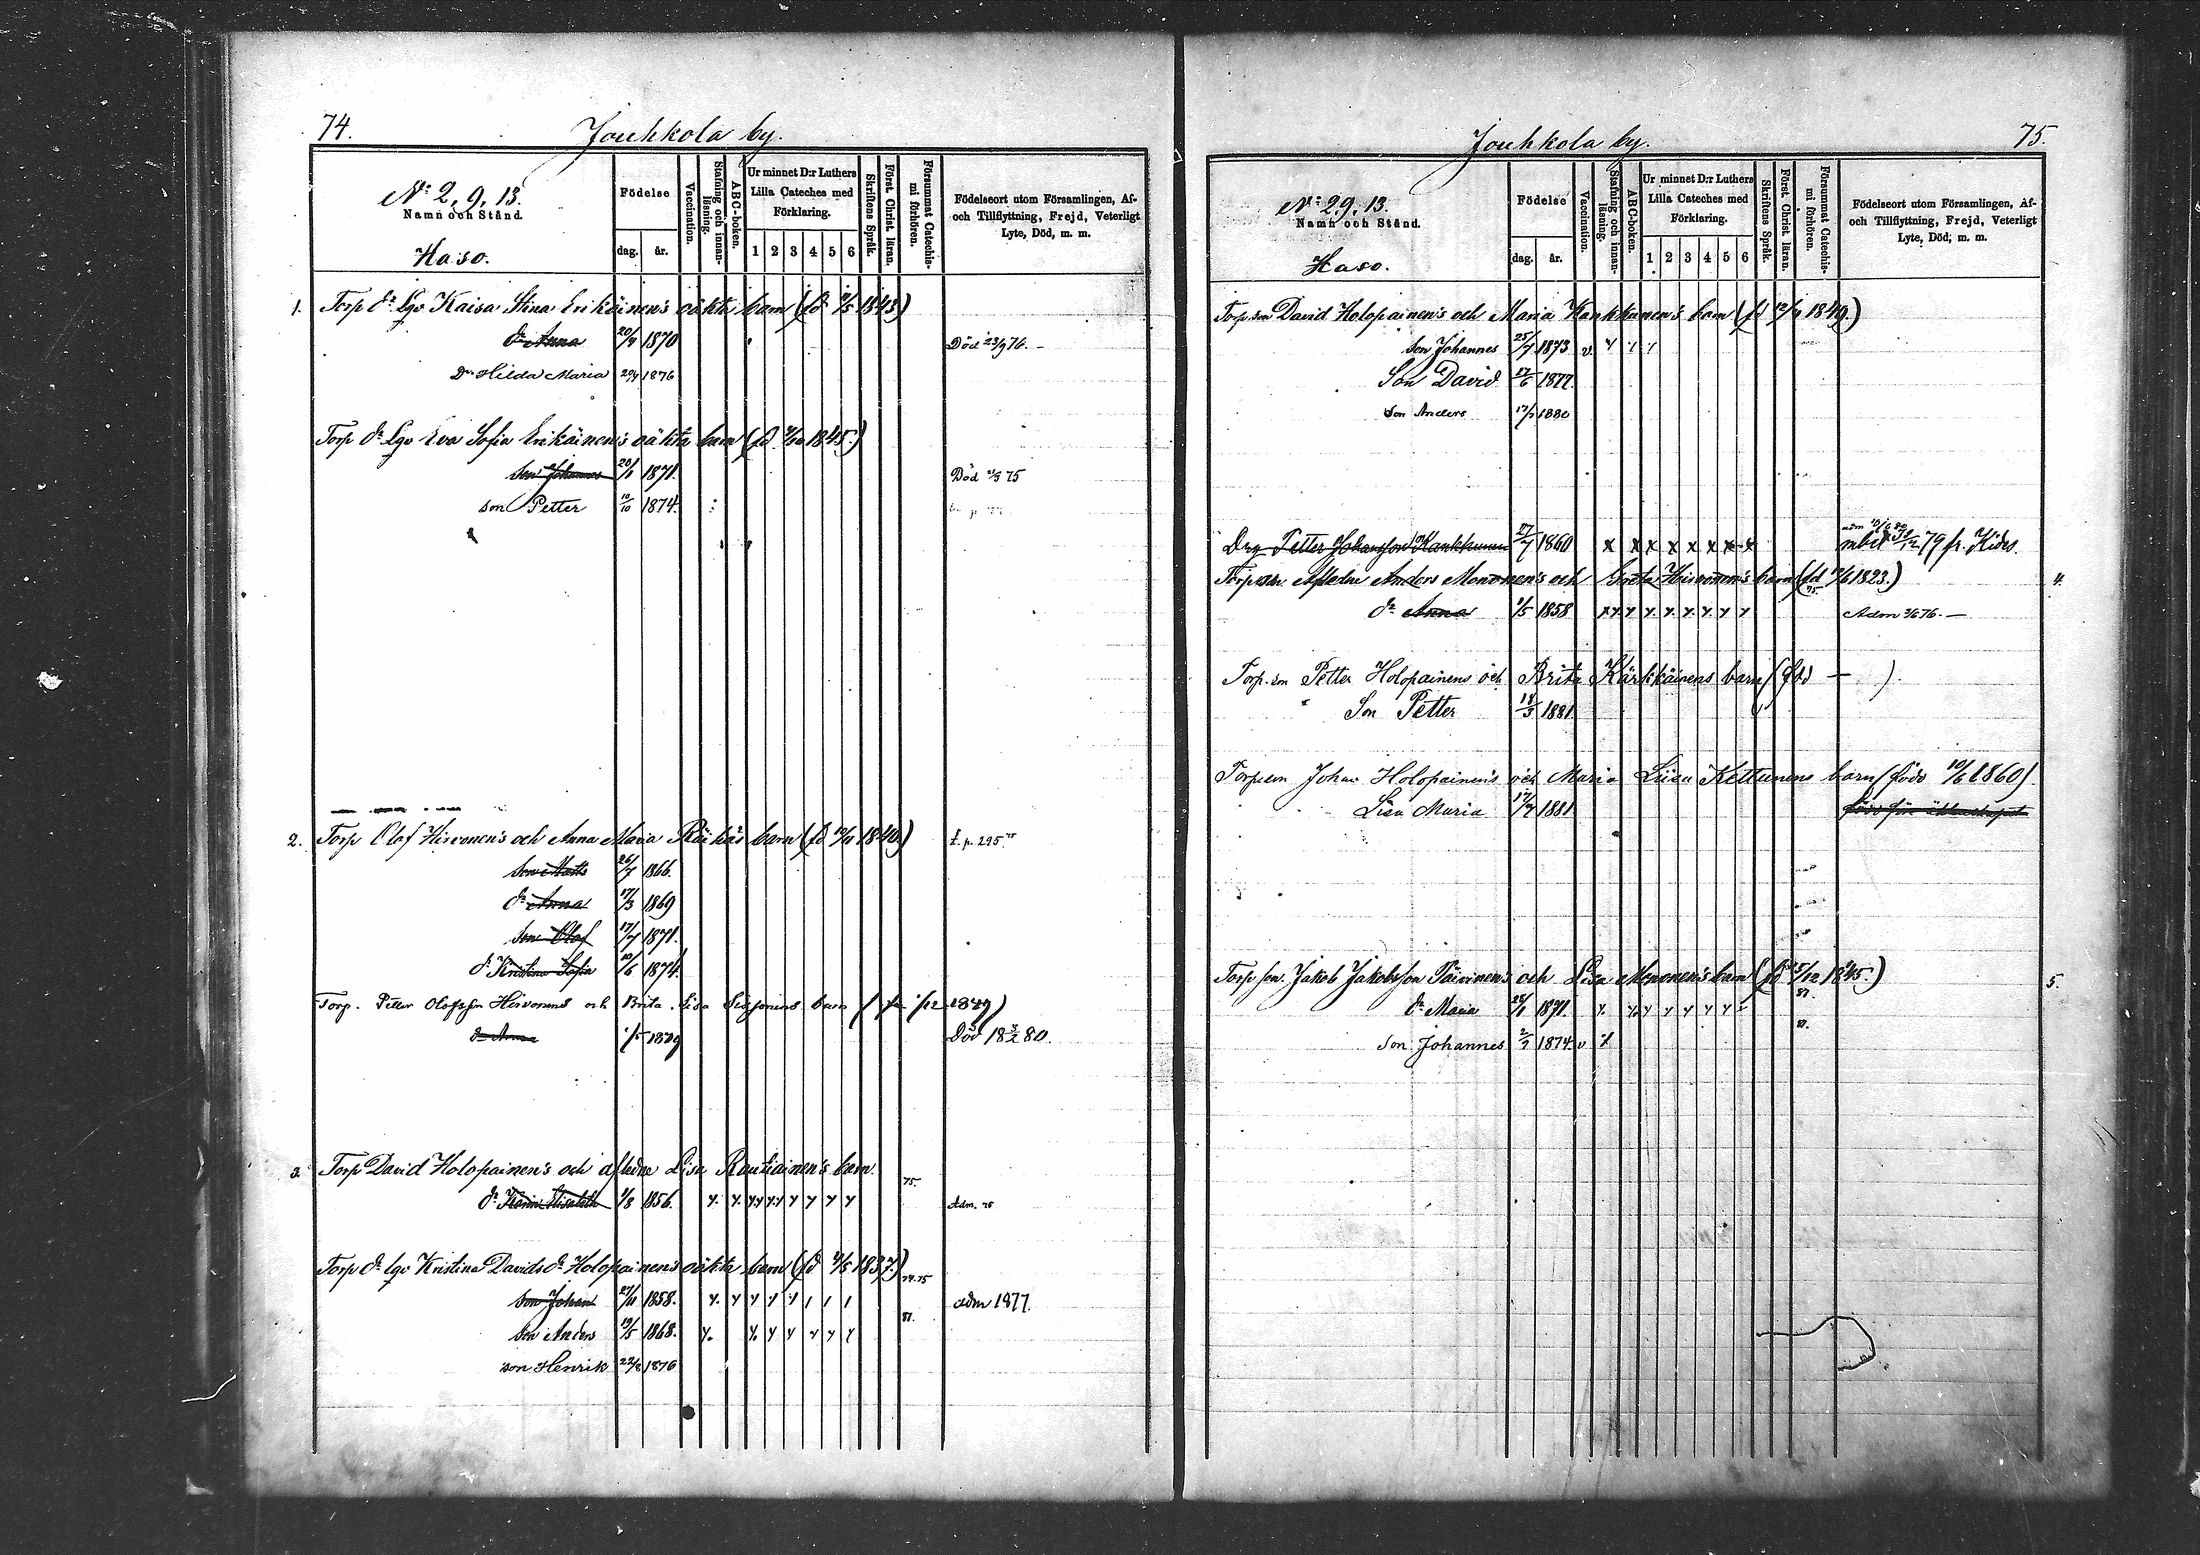 74.
Jouhkola by.
N:o 2, 9, 13.
Namn och Stånd.
Haso.
Födelse
dag. år.
Vaccination.
Stafning och innanläsning.
ABC-boken.
Ur minnet D:r Luthers Lilla Cateches med Förklaring.
1 2 3 4 5 6
Skriftens Språk.
Först. Christ. läran.
Försummat Catechismi förhören.
Födelseort utom Församlingen, Af- och Tillflyttning, Frejd, Veterligt Lyte, Död, m. m.
1. Torp dr lgv Kaisa Stina Erikäinen's oäkta barn (fd 1843)
dr Anna 20/9 1870 Död 23/9 76.
Dr Hilda Maria 1876
Torp dr lgv Eva Sofia Erikäinen's oäkta barn (fd 1845.)
son Johannes 20/1 1871. Död 75
son Petter 10/10 1874.
2. Torp Olof Hirvonen's och Anna Maria Räihä's barn (fd 12/11 1840.) t. p. 295
son Matts 26/7 1866.
dr Anna 17/3 1869
son Olof 17/7 1871.
dr Kristina Sofia 10/6 1874.
Torp. Petter Olofsson Hirvonens och Brita Lisa barn 1849)
dr Anna 1879 Död 18 3/2 80.
3. Torp David Holopainen's och aflidne Lisa Rautiainen's barn.
75.
dr Karin Elisabeth 1/8 1856. x x x x x x x x x Adm. 75
Torp dr lgv Kristina Davids dr Holopainen's oäkta barn (fd 4/5 1837.)
74.75
son Johan 27/11 1858. adm 1877.
81.
son Anders 19/5 1868.
son Henrik 22/8 1876
75.
Jouhkola by.
N:o 2,9,13.
Namn och Stånd.
Haso.
Födelse
dag. år.
Vaccination.
Stafning och innanläsning.
ABC-boken.
Ur minnet D:r Luthers Lilla Cateches med Förklaring.
1 2 3 4 5 6
Skriftens Språk.
Först. Christ. läran.
Försummat Catechismi förhören.
Födelseort utom Församlingen, Af- och Tillflyttning, Frejd, Veterligt Lyte, Död, m. m.
Torp. son David Holopainen's och Maria Kankkunen's barn (fd 12/9 1849.)
son Johannes 25/7 1873 v
Son David 17/6 1877.
son Anders 1880
Drg Petter Johansson Kankkunen 27/7 1860 x x x x x x x x mbet 31/12 79 fr. Kides.
Torp. Aflidne Anders Mononen's och Greta Hirvonen's barn (fd 12/6 1823.) 4.
75.
dr Anna 1/5 1858 Adm 76.
Torp. son Petter Holopainens och Brita Kärkkäinens barn (född — ).
Son Petter 18/3 1881
Torp. son Johan Holopainen's och Maria Liisa Kettunens barn (född 10/6 1860)
Lisa Maria 17/7 1881. född före äktenskapet
Torp son. Jakob Jakobsson Päivinen's och Lisa Mononen's barn (fd 5/12 1845.) 5.
81.
dr Maria 25/1 1871.
81.
Son Johannes 2/7 1874. v